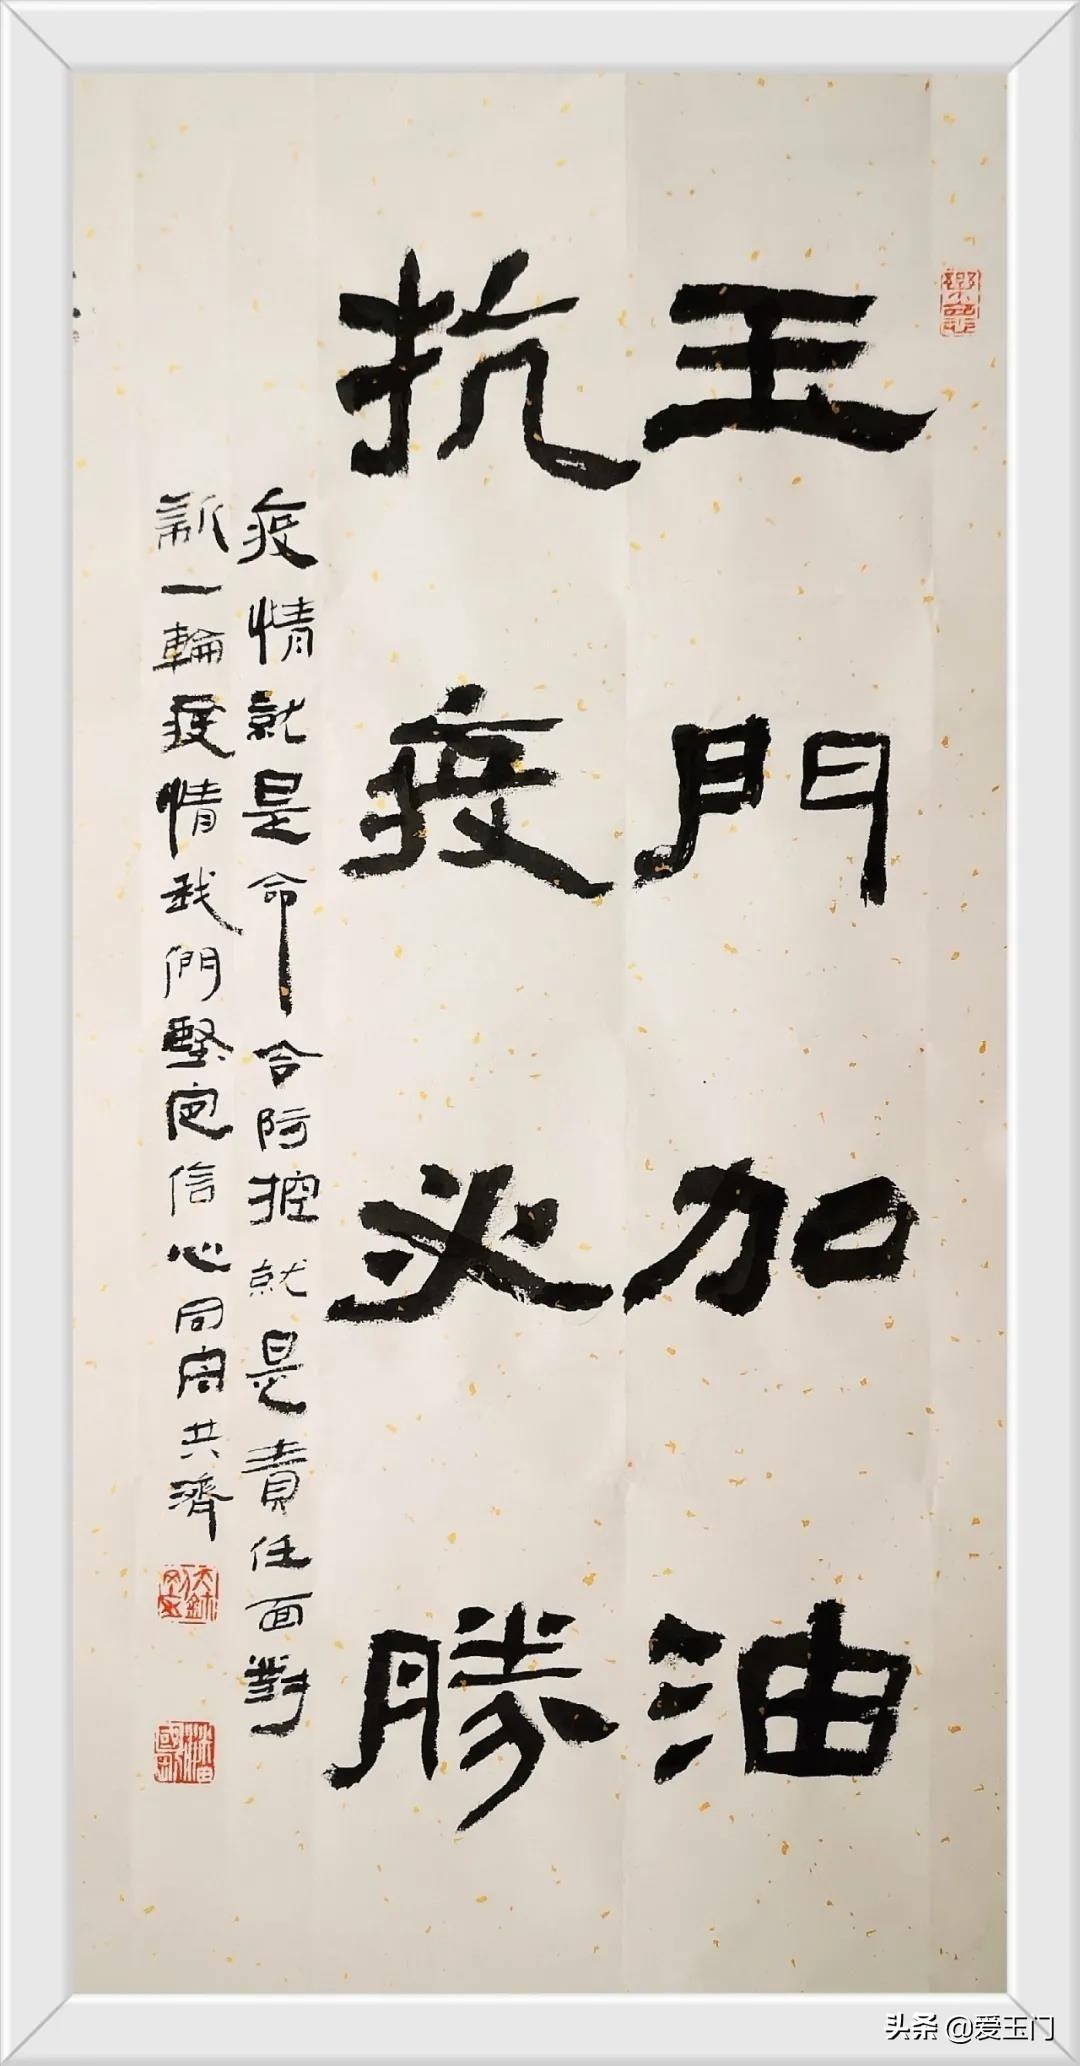 玉門加油
抗疫必勝
疫情就是命令防控就是責任面對
新一輪疫情我們堅定信心同舟共濟
头条 @爱玉门